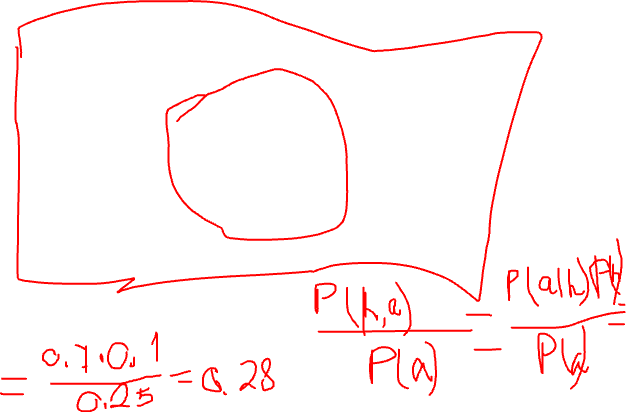 P(h,a)/P(a) = P(a|h)P(h)/P(a) =
= 0.7·0.1/0.25 = 0.28